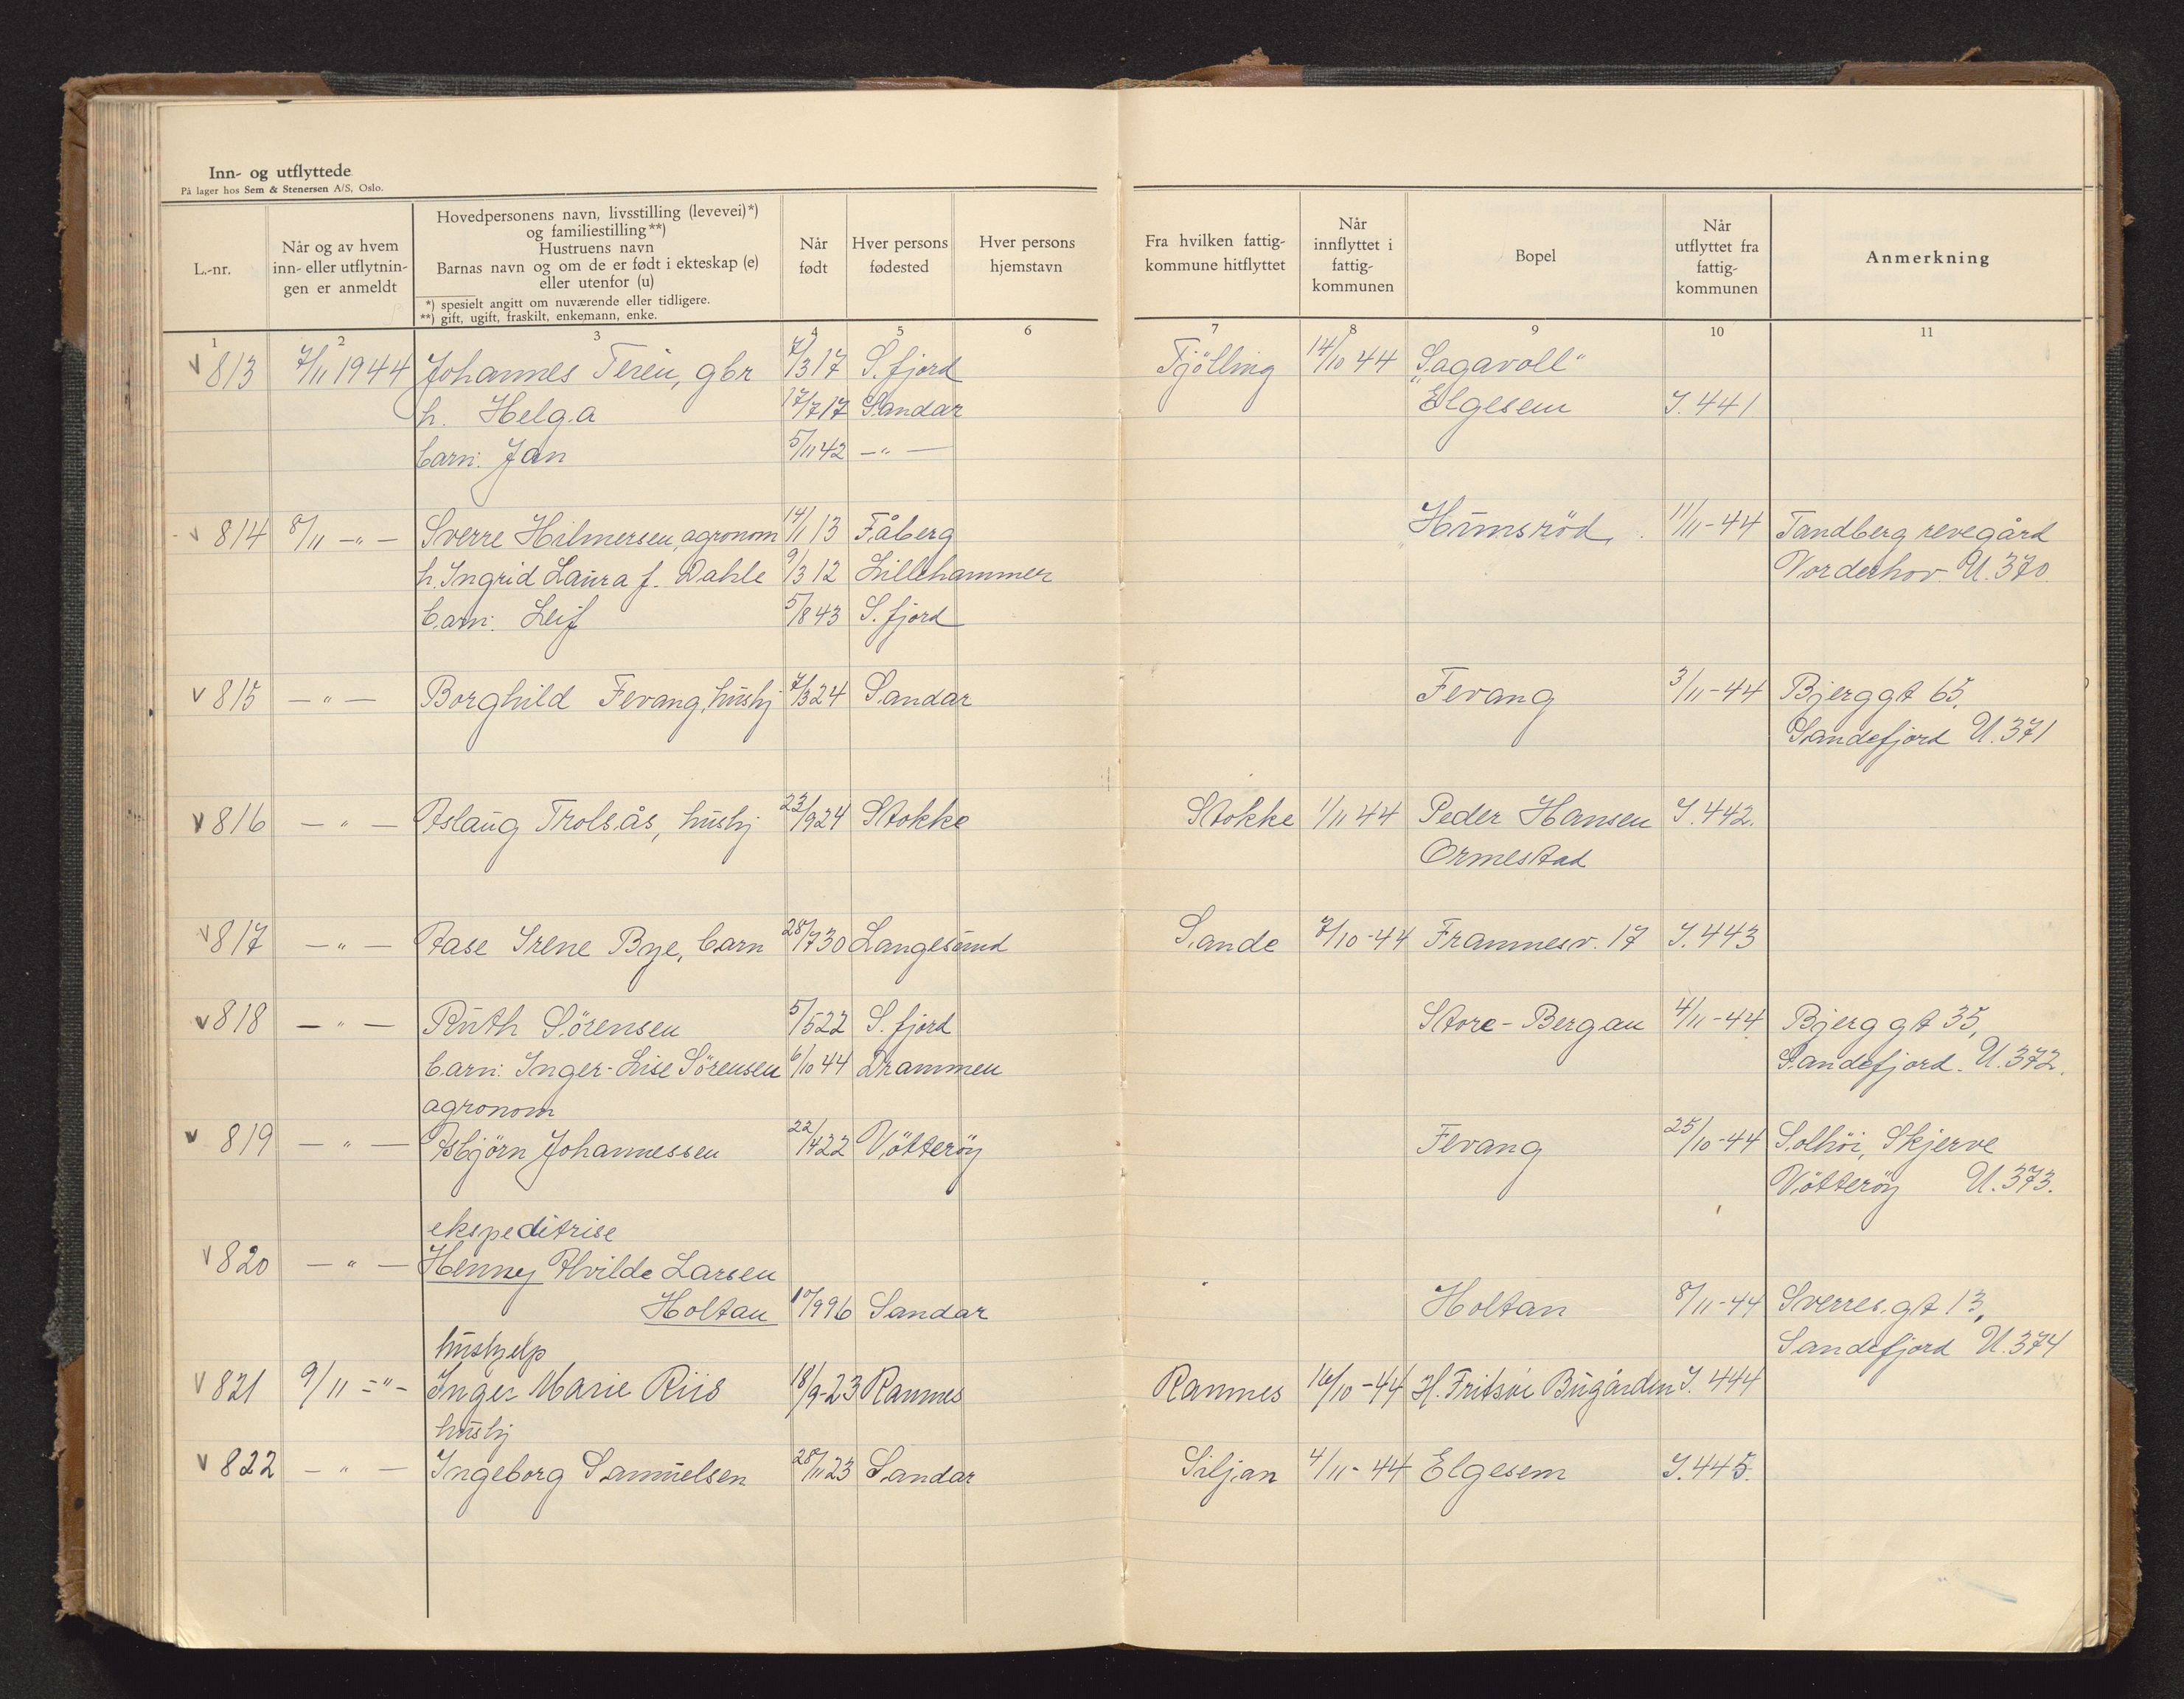 Inn- og utflyttede
På lager hos Sem & Stenersen A/S, Oslo.
L.-nr.
Når og av hvem
inn- eller utflytnin-
gen er anmeldt
Hovedpersonens navn, livsstilling (levevei)*)
og familiestilling**)
Hustruens navn
Barnas navn og om de er født i ekteskap (e)
eller utenfor (u)
*) spesielt angitt om nuværende eller tidligere.
**) gift, ugift, fraskilt, enkemann, enke.
Når
født
Hver persons
fødested
Hver persons
hjemstavn
Fra hvilken fattig-
kommune hitflyttet
Når
innflyttet i
fattig-
kommunen
Bopel
Når
utflyttet fra
fattig-
kommunen
Anmerkning
1 2 3 4 5 6 7 8 9 10 11
v 813 7/11 1944 Johannes Teien, gbr 7/3 17 S. fjord Tjölling 14/10 44 "Sagavoll"
h. Helga 17/7 17 Sandar Elgesem I. 441
barn: Jan 5/11 42 - " -
v 814 8/11 - " - Sverre Hilmersen, agronom 14/1 13 Fåberg Himsröd, 11/11-44 Tandberg revegård
h. Ingrid Laura f. Dahle 9/3 12 Lillehammer Norderhov U. 370
barn: Leif 5/8 43 S. fjord
v 815 - " - Borghild Fevang, hushj 7/3 24 Sandar Fevang 3/11-44 Bjerggt 65,
Sandefjord U. 371
v 816 - " - Aslaug Trolsås, hushj 23/9 24 Stokke Stokke 1/11 44 Peder Hansen I. 442.
Ormestad
v 817 - " - Aase Irene Bye, barn 28/7 30 Langesund Sande 7/10-44 Framnesv. 17 I. 443
v 818 - " - Ruth Sörensen 5/5 22 S. fjord Store-Bergan 4/11-44 Bjerggt 35,
barn: Inger-Lise Sörensen 6/10 44 Drammen Sandefjord. U. 372.
agronom
v 819 - " - Asbjörn Johannessen 22/4 22 Nötteröy Fevang 25/10-44 Solhöi, Skjerve
Nötteröy U. 373.
ekspeditrise
v 820 - " - Henny Alvilde Larsen
Holtan 10/9 96 Sandar Holtan 8/11-44 Sverres.gt 13,
hushjelp Sandefjord U. 374
v 821 9/11 - " - Inger Marie Riis 18/9-23 Ramnes Ramnes 16/10-44 H. Fritsöe Bugården I. 444
hushj
v 822 - " - Ingeborg Samuelsen 28/11 23 Sandar Siljan 4/11-44 Elgesem I. 445.